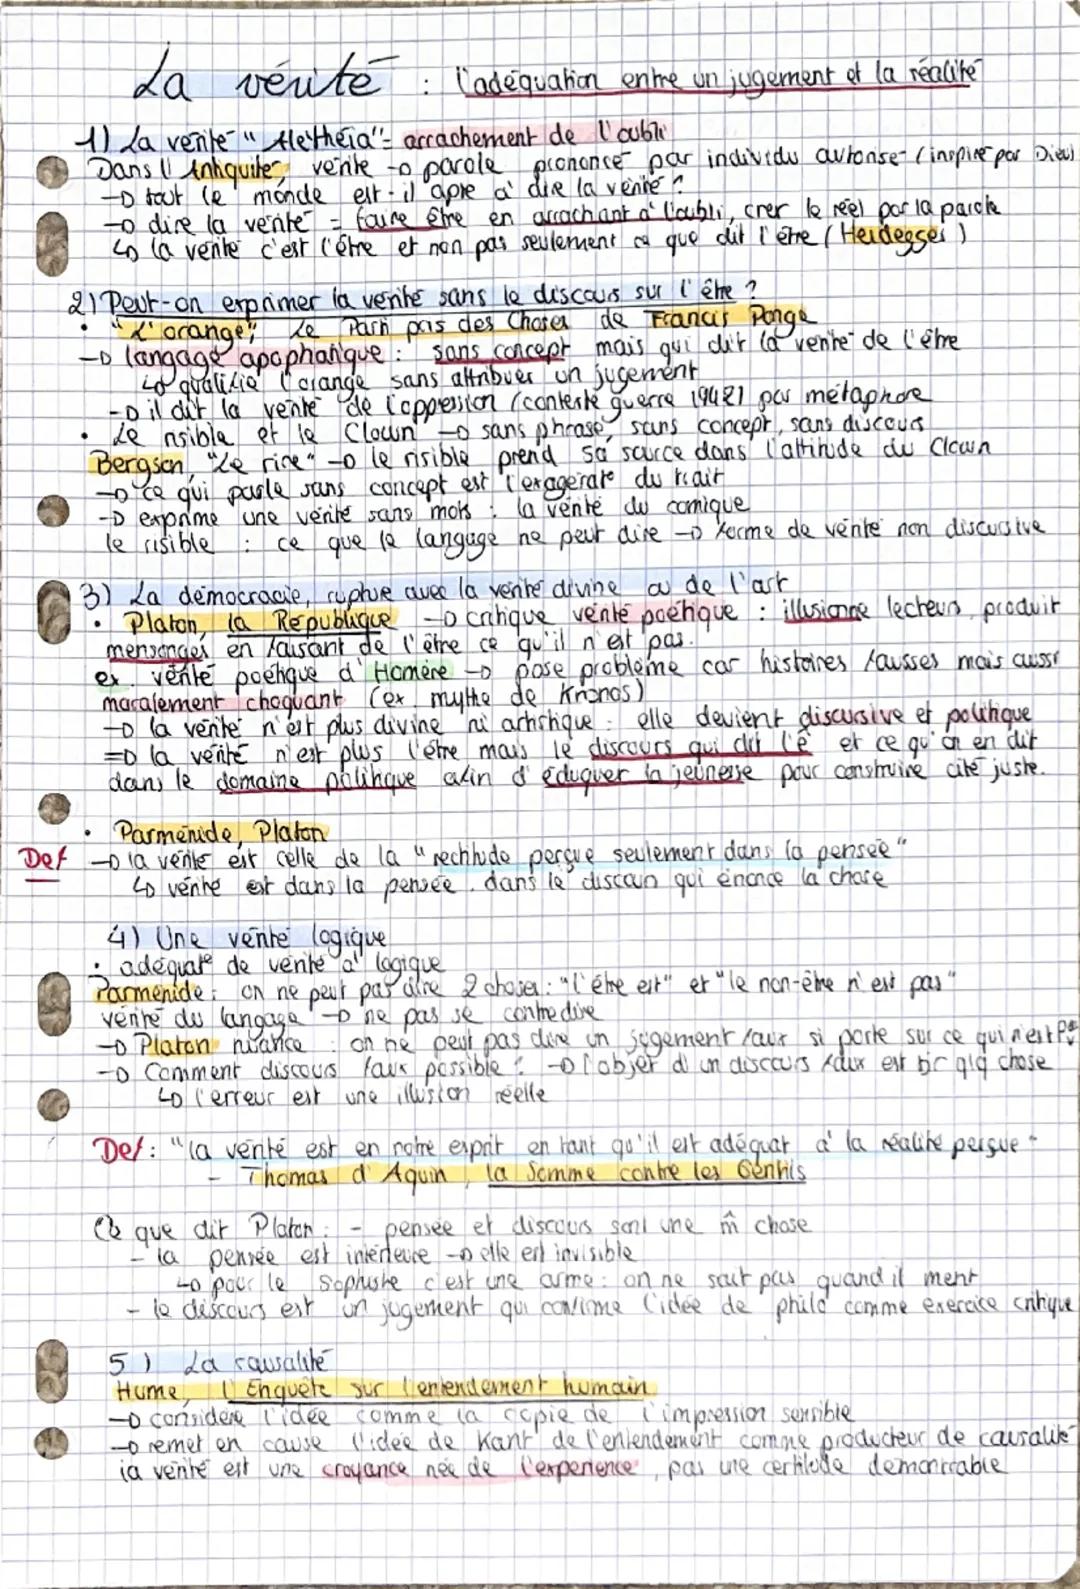 La vérité : l'adéquation entre un jugement et la réalité
1) La vérité "Aletheia" = arrachement de l'oubli
Dans l'Antiquité, vérité → parole prononcé par individu autorisé (inspiré par Dieu)
→ tout le monde est-il apte à dire la vérité ?
→ dire la vérité = faire être en arrachant à l'oubli, créer le réel par la parole
↳ la vérité c'est l'être et non pas seulement ce que dit l'être (Heidegger)
2) Peut-on exprimer la vérité sans le discours sur l'être ?
• "L'orange", Le Parti pris des Choses de Francis Ponge
→ langage apophatique : sans concept mais qui dit la vérité de l'être
↳ qualifie l'orange sans attribuer un jugement
→ il dit la vérité de l'oppression (contexte guerre 1942) par métaphore
• Le risible et le Clown → sans phrase, sans concept, sans discours
Bergson, "Le rire" → le risible prend sa source dans l'attitude du Clown
→ ce qui parle sans concept est l'exagérat° du trait
→ exprime une vérité sans mots : la vérité du comique
le risible : ce que le langage ne peut dire → forme de vérité non discursive
3) La démocracie, rupture avec la vérité divine ou de l'art
• Platon, la République → critique vérité poétique : illusionne lecteurs, produit
mensonges en faisant de l'être ce qu'il n'est pas.
ex. vérité poétique d'Homère → pose problème car histoires fausses mais aussi
moralement choquant (ex. mythe de Kronos)
→ la vérité n'est plus divine ni artistique : elle devient discursive et politique
⇒ la vérité n'est plus l'être mais le discours qui dit l'ê et ce qu'on en dit
dans le domaine politique afin d'éduquer la jeunesse pour construire cité juste.
• Parménide, Platon
Def → la vérité est celle de la "rectitude perçue seulement dans la pensée"
↳ vérité est dans la pensée, dans le discours qui énonce la chose
4) Une vérité logique
• adéquat° de vérité à logique
Parménide : on ne peut pas dire 2 choses : "l'être est" et "le non-être n'est pas"
vérité du langage → ne pas se contredire
→ Platon nuance : on ne peut pas dire un jugement faux si porte sur ce qui n'est pas
→ Comment discours faux possible ? → l'objet d'un discours faux est bc qlq chose
↳ l'erreur est une illusion réelle
Def : "la vérité est en notre esprit en tant qu'il est adéquat à la réalité perçue"
- Thomas d'Aquin, la Somme contre les Gentils
Ce que dit Platon : - pensée et discours sont une m̂ chose
- la pensée est intérieure → elle est invisible
↳ pour le sophiste c'est une arme : on ne sait pas quand il ment
- le discours est un jugement qui confirme l'idée de philo comme exercice critique
5) La causalité
Hume, l'Enquête sur l'entendement humain
→ considère l'idée comme la copie de l'impression sensible
→ remet en cause l'idée de Kant de l'entendement comme producteur de causalité
la vérité est une croyance née de l'expérience, pas une certitude démontrable